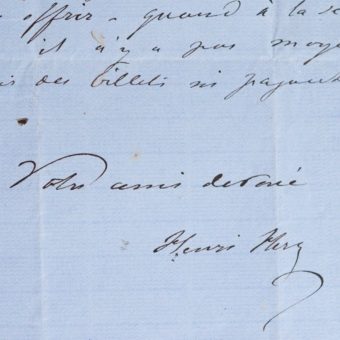 offrir, quand à la
il n'y a pas moye
des billets ni
Votre ami dévoué
Henri Herz